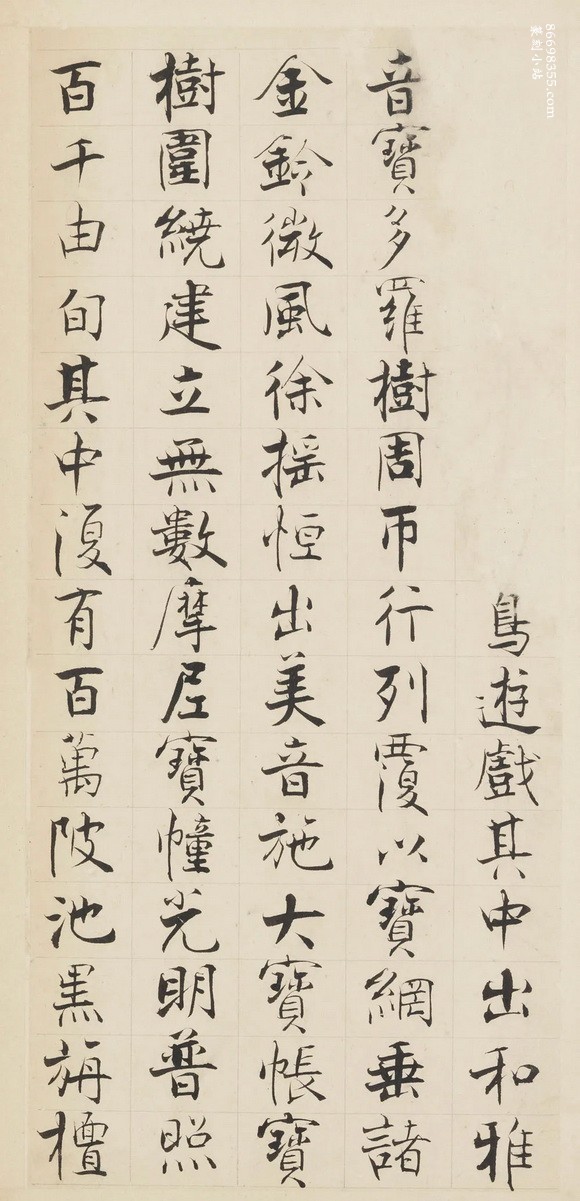 鳥遊戲其中出和雅
音寶多羅樹周帀行列覆以寶網垂諸
金鈴微風徐搖恒出美音施大寶帳寶
樹圍繞建立無數摩尼寶幢光明普照
百千由旬其中復有百萬陂池黑旃檀
86698355.com
篆刻小站